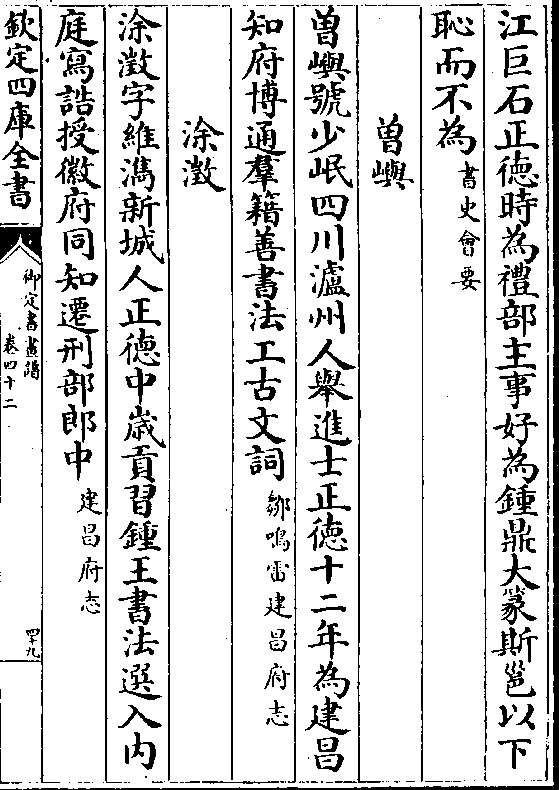 江巨石正徳時為禮部主事好為鍾鼎大篆斯邕以下
恥而不為書史會要
曽嶼
曽嶼號少岷四川瀘州人舉進士正徳十二年為建昌
知府博通羣籍善書法工古文詞鄒鳴雷建昌府志
涂澂
涂澂字維濁新城人正徳中歳貢習鍾王書法選入内
庭寫誥授徽府同知遷刑部郎中建昌府志
欽定四庫全書
御定書畫譜
卷四十二
四十九